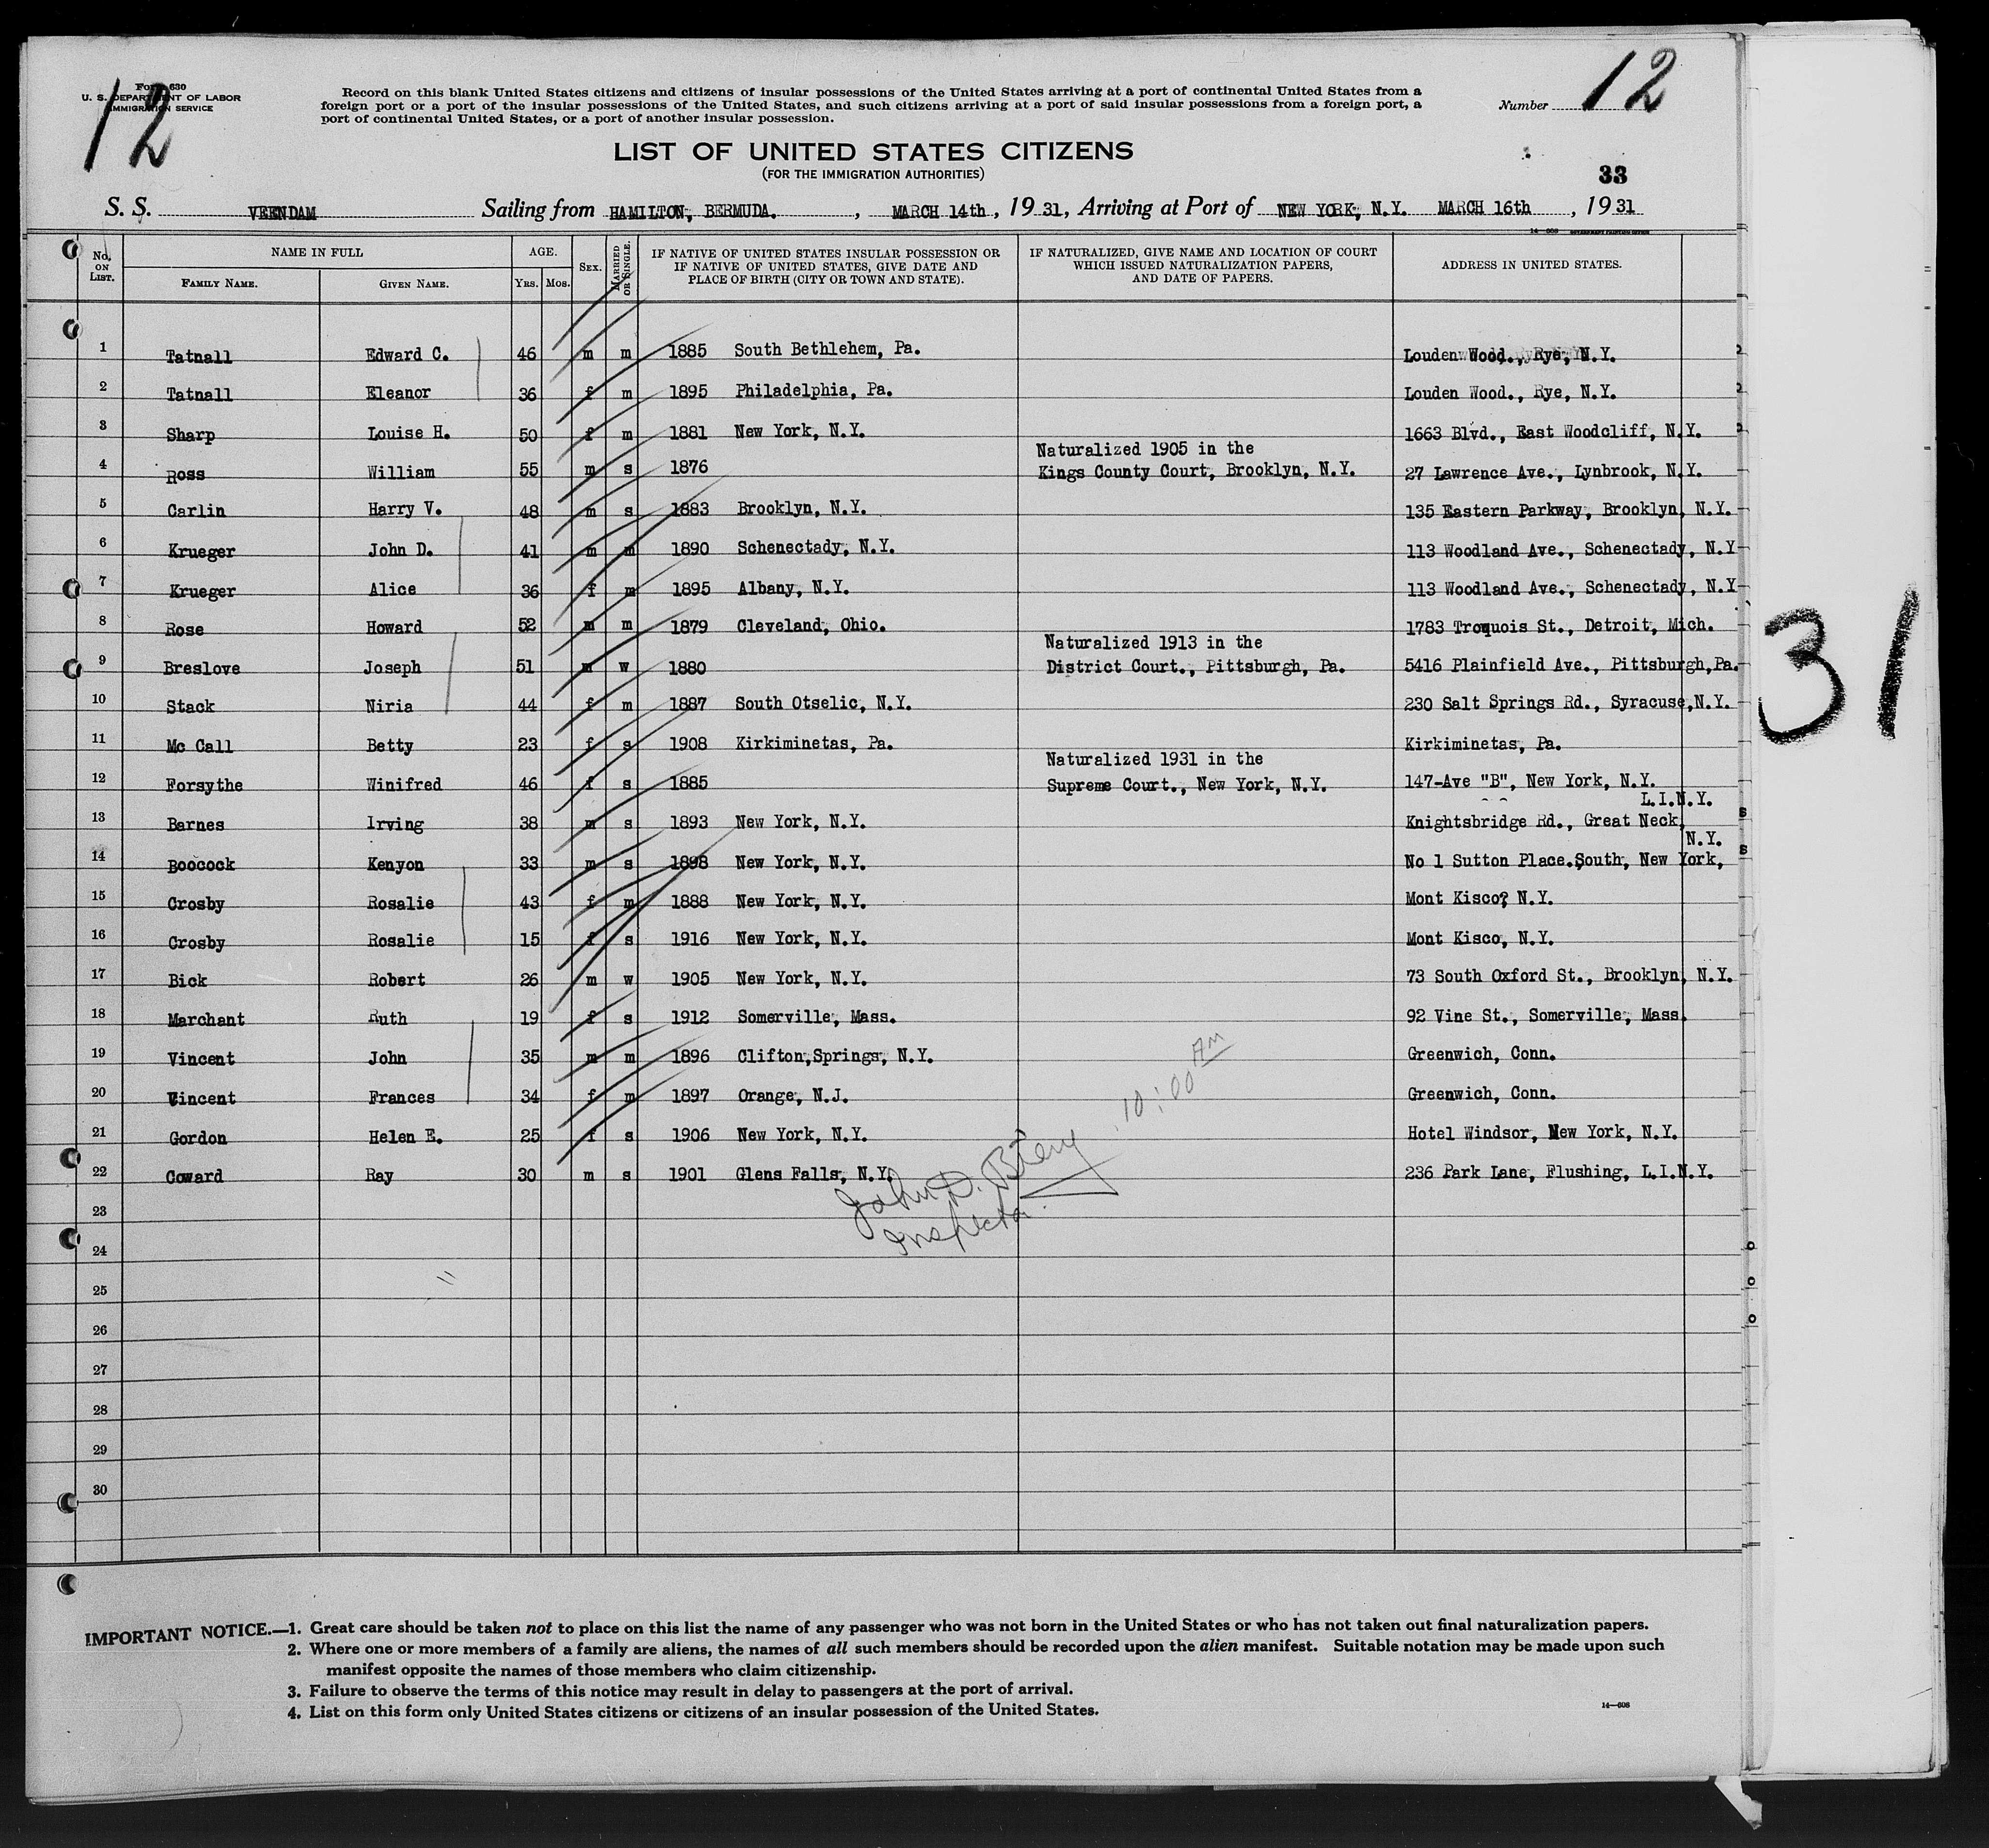 12
Form 630
U. S. DEPARTMENT OF LABOR
IMMIGRATION SERVICE
Record on this blank United States citizens and citizens of insular possessions of the United States arriving at a port of continental United States from a
foreign port or a port of the insular possessions of the United States, and such citizens arriving at a port of said insular possessions from a foreign port, a
port of continental United States, or a port of another insular possession.
Number 12
LIST OF UNITED STATES CITIZENS
(FOR THE IMMIGRATION AUTHORITIES)
33
S. S. VEENDAM Sailing from HAMILTON, BERMUDA. , MARCH 14th , 19 31, Arriving at Port of NEW YORK, N.Y. MARCH 16th , 19 31
14—608 GOVERNMENT PRINTING OFFICE
No. ON LIST. NAME IN FULL FAMILY NAME. GIVEN NAME. AGE. YRS. MOS. SEX. MARRIED OR SINGLE. IF NATIVE OF UNITED STATES INSULAR POSSESSION OR IF NATIVE OF UNITED STATES, GIVE DATE AND PLACE OF BIRTH (CITY OR TOWN AND STATE). IF NATURALIZED, GIVE NAME AND LOCATION OF COURT WHICH ISSUED NATURALIZATION PAPERS, AND DATE OF PAPERS. ADDRESS IN UNITED STATES.
1 Tatnall Edward C. 46 m m 1885 South Bethlehem, Pa. Louden Wood., Rye, N.Y.
2 Tatnall Eleanor 36 f m 1895 Philadelphia, Pa. Louden Wood., Rye, N.Y.
3 Sharp Louise H. 50 f m 1881 New York, N.Y. 1663 Blvd., East Woodcliff, N.Y.
Naturalized 1905 in the
4 Ross William 55 m s 1876 Kings County Court, Brooklyn, N.Y. 27 Lawrence Ave., Lynbrook, N.Y.
5 Carlin Harry V. 48 m s 1883 Brooklyn, N.Y. 135 Eastern Parkway, Brooklyn, N.Y.
6 Krueger John D. 41 m m 1890 Schenectady, N.Y. 113 Woodland Ave., Schenectady, N.Y
7 Krueger Alice 36 f m 1895 Albany, N.Y. 113 Woodland Ave., Schenectady, N.Y
8 Rose Howard 52 m m 1879 Cleveland, Ohio. 1783 Troquois St., Detroit, Mich.
Naturalized 1913 in the
9 Breslove Joseph 51 m w 1880 District Court., Pittsburgh, Pa. 5416 Plainfield Ave., Pittsburgh,Pa.
10 Stack Niria 44 f m 1887 South Otselic, N.Y. 230 Salt Springs Rd., Syracuse,N.Y.
11 Mc Call Betty 23 f s 1908 Kirkiminetas, Pa. Kirkiminetas, Pa.
Naturalized 1931 in the
12 Forsythe Winifred 46 f s 1885 Supreme Court., New York, N.Y. 147-Ave "B", New York, N.Y.
L.I.N.Y.
13 Barnes Irving 38 m s 1893 New York, N.Y. Knightsbridge Rd., Great Neck,
N.Y.
14 Boocock Kenyon 33 m s 1898 New York, N.Y. No 1 Sutton Place.South, New York,
15 Crosby Rosalie 43 f m 1888 New York, N.Y. Mont Kisco, N.Y.
16 Crosby Rosalie 15 f s 1916 New York, N.Y. Mont Kisco, N.Y.
17 Bick Robert 26 m w 1905 New York, N.Y. 73 South Oxford St., Brooklyn, N.Y.
18 Marchant Ruth 19 f s 1912 Somerville, Mass. 92 Vine St., Somerville, Mass.
19 Vincent John 35 m m 1896 Clifton,Springs, N.Y. Greenwich, Conn.
20 Vincent Frances 34 f m 1897 Orange, N.J. Greenwich, Conn.
21 Gordon Helen E. 25 f s 1906 New York, N.Y. Hotel Windsor, New York, N.Y.
22 Coward Ray 30 m s 1901 Glens Falls, N.Y. 236 Park Lane, Flushing, L.I.N.Y.
10:00 AM
John D.
Inspector.
23
24
25
26
27
28
29
30
31
IMPORTANT NOTICE.—1. Great care should be taken not to place on this list the name of any passenger who was not born in the United States or who has not taken out final naturalization papers.
2. Where one or more members of a family are aliens, the names of all such members should be recorded upon the alien manifest. Suitable notation may be made upon such
manifest opposite the names of those members who claim citizenship.
3. Failure to observe the terms of this notice may result in delay to passengers at the port of arrival.
4. List on this form only United States citizens or citizens of an insular possession of the United States.
14—608